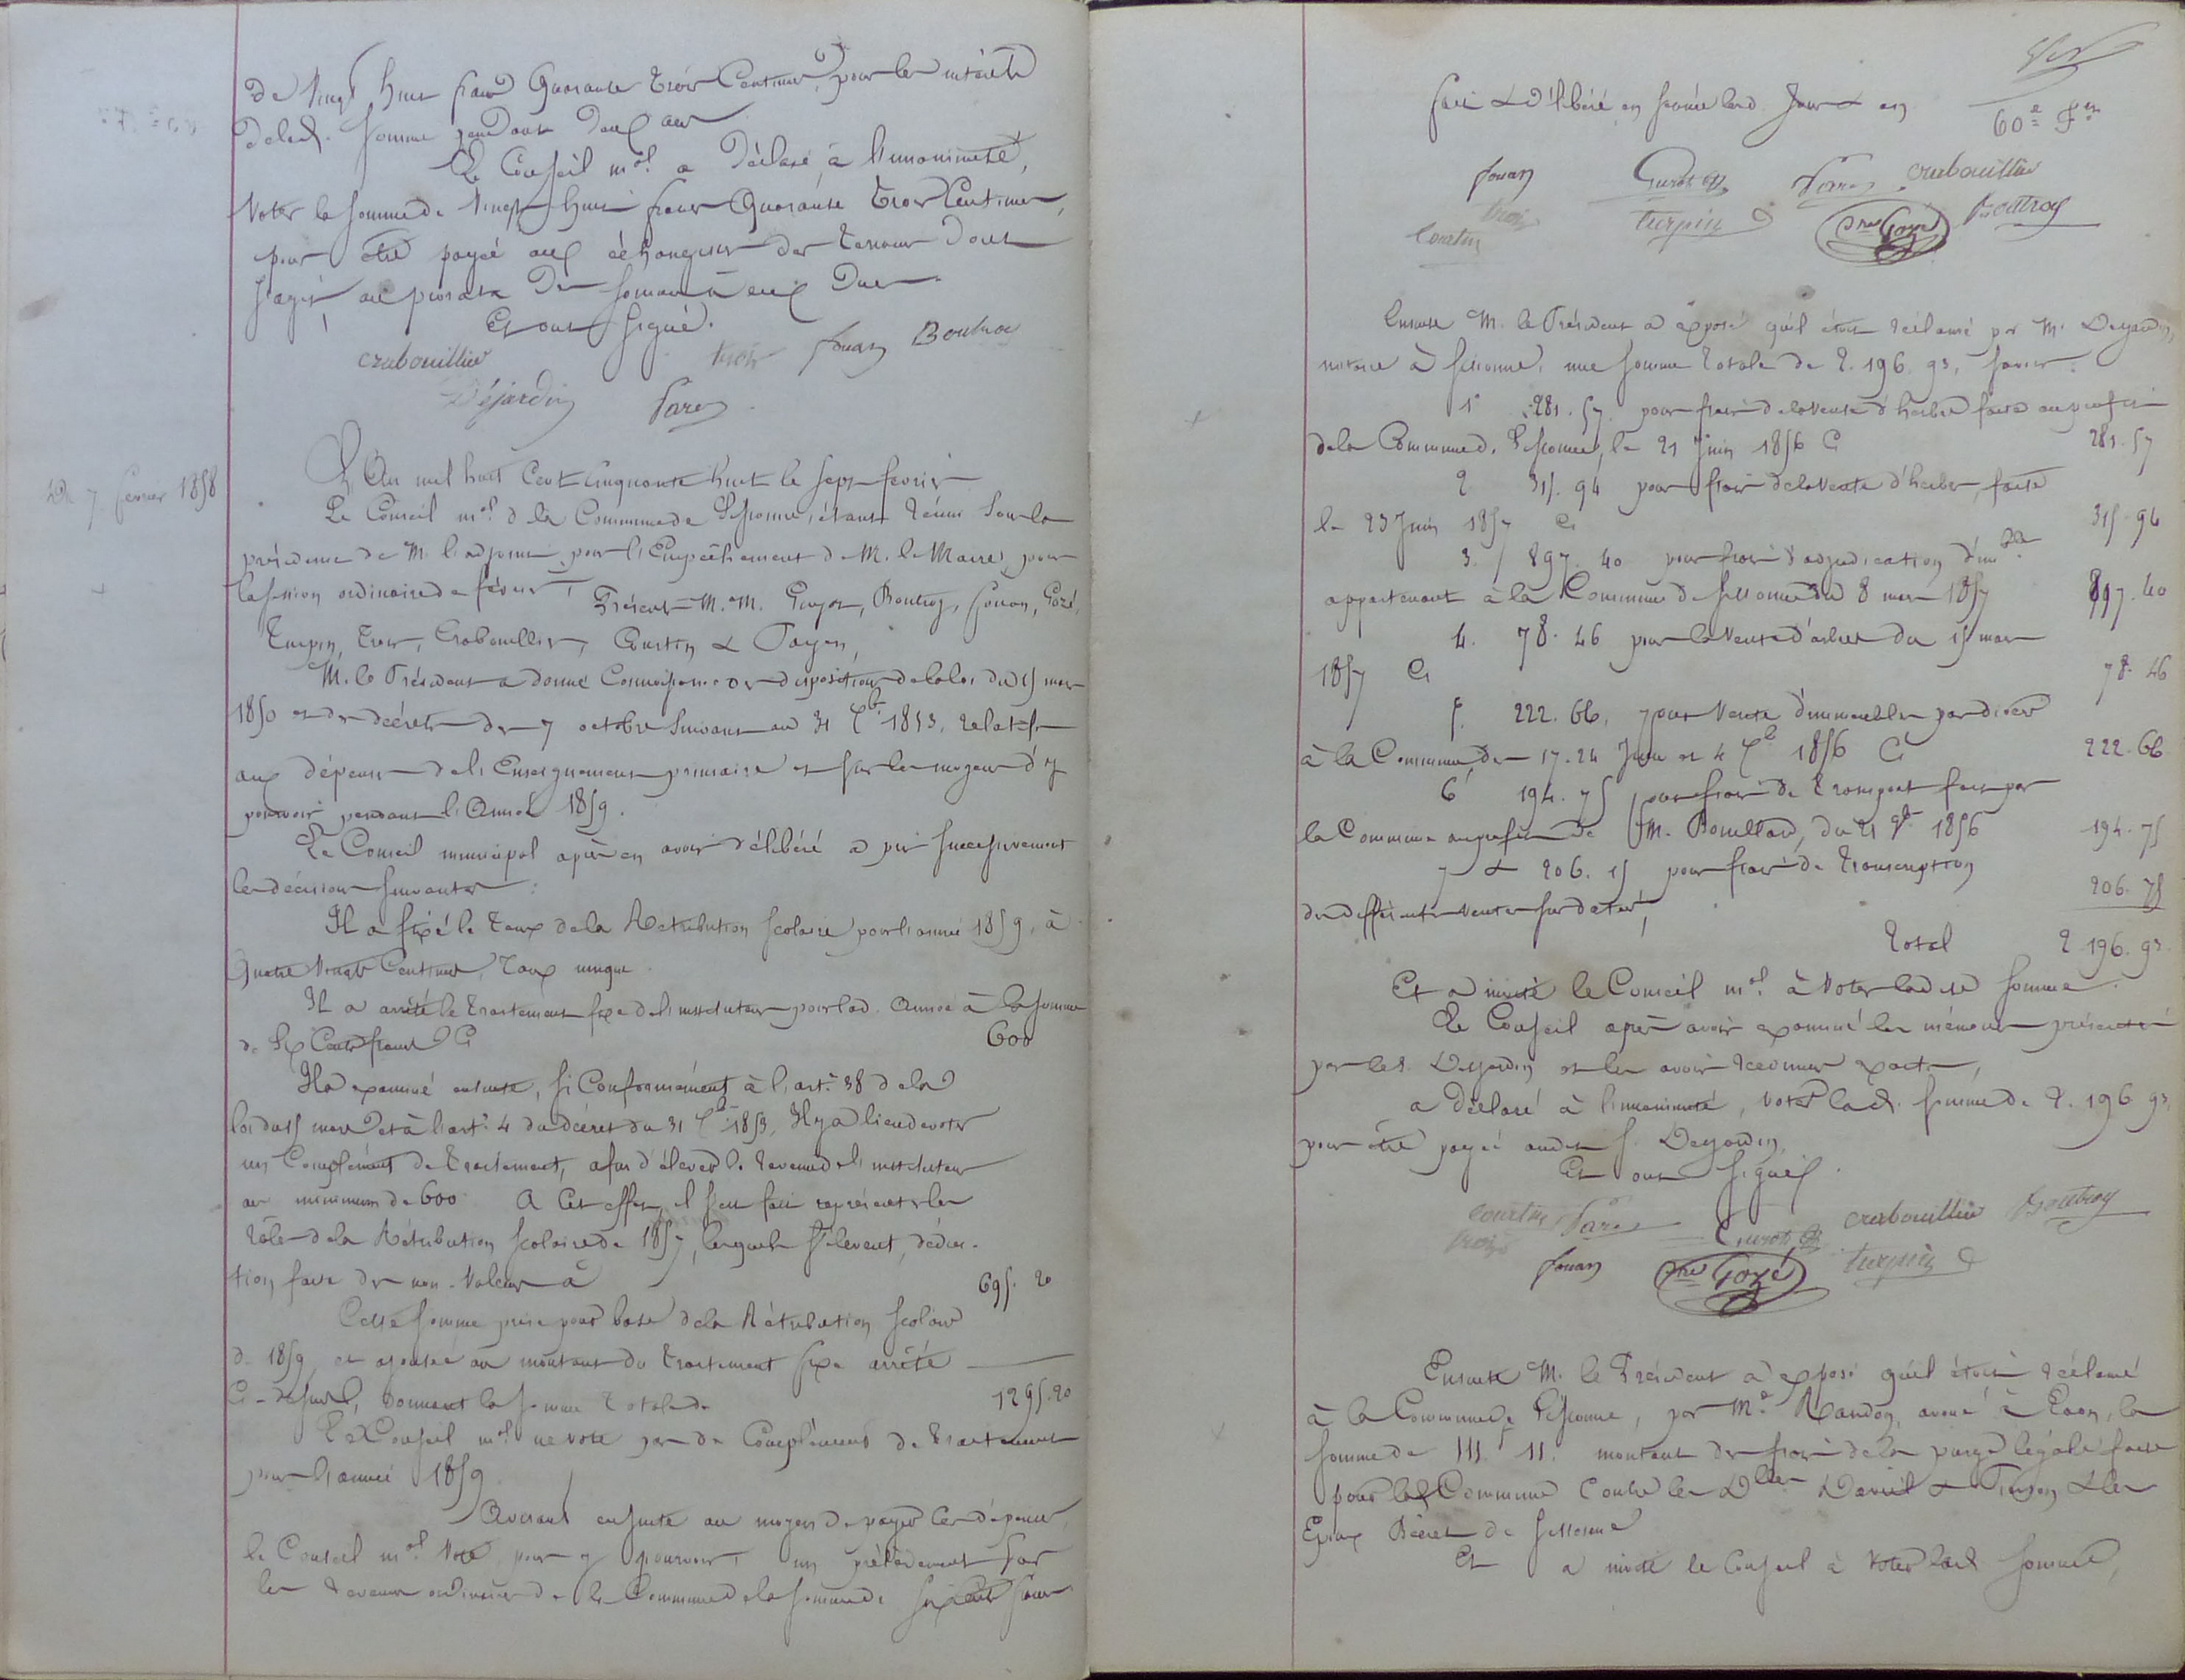 de Vingt huit francs Quarante trois Centimes, pour les intérêts
de lad. Somme pendant deux ans
Le Conseil mal a déclaré, à l'unanimité,
Voter la somme de Vingt huit francs Quarante trois Centimes,
pour être payée aux échangistes des terrains dont
s'agit, au prorata des sommes à eux dues.
Et ont signé.
crabouillier trois fouan Boutroy
Déjardin Paren
Du 7 février 1858
L'An mil huit Cent Cinquante huit le sept février
Le Conseil mal de la Commune de Sissonne, étant réuni sous la
présidence de M. l'adjoint, pour l'Empêchement de M. le Maire, pour
la session ordinaire de février,
Présents M.M. Guyot, Boutroy, fouan, Gozé,
Turpin, Trois, Crabouillier, Courtin &
M. le Président a donné Connaissance des dispositions de la loi du 15 mars
1850 et des décrets des 7 octobre suivant au 31 Xbre 1853, relatifs
aux dépenses de l'Enseignement primaire et sur les moyens d'y
pourvoir pendant l'Année 1859.
Le Conseil municipal après en avoir délibéré a pris successivement
les décisions suivantes :
Il a fixé le taux de la Rétribution scolaire pour l'année 1859, à
Quatre Vingts Centimes, taux unique.
Il a arrêté le traitement fixe de l'instituteur pour lad. Année à la somme
de Six Cents francs Ci 600
Il a examiné ensuite, si Conformément à l'art. 38 de la
loi du 15 mars et à l'art. 4 du décret du 31 Xbre 1853, Il y a lieu de voter
un Complément de traitement, afin d'élever le revenu de l'instituteur
au minimum de 600. A Cet effet, il s'est fait représenter les
rôles de la Rétribution scolaire de 1857, lesquels s'élèvent, déduc-
tion faite des non-Valeurs à 695. 20
Cette somme prise pour base de la Rétribution scolaire
de 1859, et ajoutée au montant du traitement fixe arrêté
Ci-dessus, donnent la somme totale de 1295.20
Le Conseil mal ne vote pas de Complément de traitement
pour l'année 1859.
Avisant ensuite au moyen de payer les dépenses,
le Conseil mal Vote, pour y pourvoir, un prélèvement sur
les revenus ordinaires de la Commune de la somme de Six Cents francs
60e Fet
fait & Délibéré en séance lesd. Jour & an
fouan Guyot Paren crabouillier
trois turpin Gozé Boutroy
Courtin
Ensuite M. le Président a exposé qu'il était réclamé par M. Dejardin,
notaire à Sissonne, une somme totale de 2.196. 93, savoir :
1° 281. 57. pour frais de la Vente d'herbes faite au profit
de la Commune de Sissonne, le 21 Juin 1856 Ci 281. 57
2 315. 94 pour frais de la Vente d'herbes, faite
le 23 Juin 1857 Ci 315. 94
3. 897. 40 pour frais d'adjudication d'imbles
appartenant à la Commune de Sissonne du 8 mars 1857 897. 40
4. 78. 46 pour la Vente d'arbres du 15 mars
1857 Ci 78. 46
5. 222. 66, pour Vente d'immeubles par divers
à la Commune, des 17. 24 Juin et 4 Xbre 1856 Ci 222. 66
6 194. 75 pour frais de transport fait par
la Commune au profit de M. Bouillard, du 21 9bre 1856 194. 75
7 & 206. 15 pour frais de transcription
des différentes Ventes susdatées, 206. 75
Total 2.196. 93
Et a invité le Conseil mal à Voter ladite somme.
Le Conseil après avoir examiné les mémoires présentés
par led. Dejardin et les avoir reconnus exacts,
a déclaré à l'unanimité, voter lad. somme de 2.196 93,
pour être payée audit S. Dejardin,
Et ont signé.
Courtin Paren Guyot crabouillier Boutroy
trois fouan Gozé turpin
Ensuite M. le Président a exposé qu'il était réclamé
à la Commune de Sissonne, par Me Randon, avoué à Laon, la
somme de 111. 11. montant des frais de la purge légale faite
pour la Commune Contre les Dlles & les
Epoux de Sissonne
Et a invité le Conseil à Voter lad. somme,